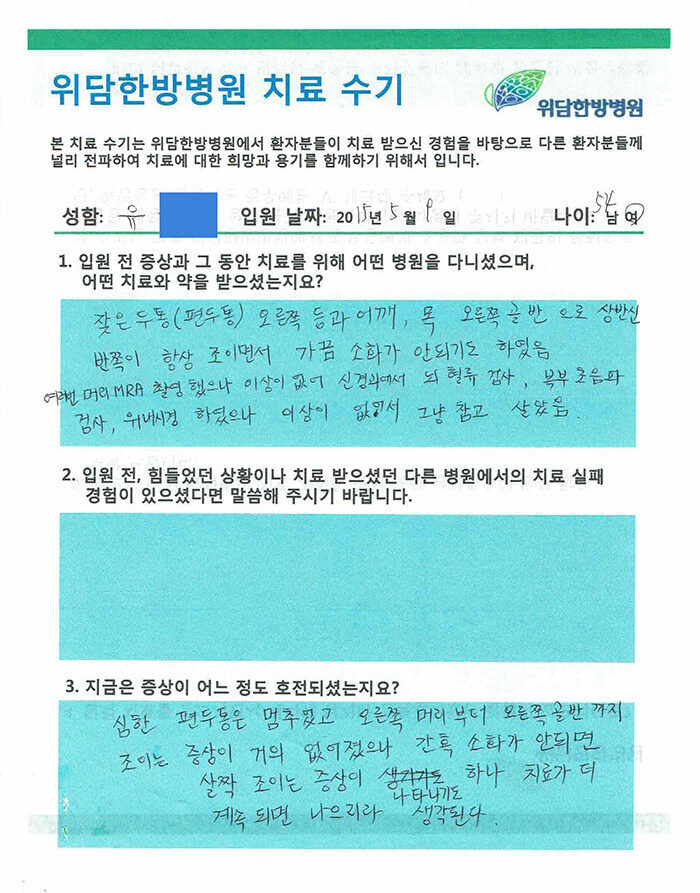 위담한방병원 치료 수기
위담한방병원
본 치료 수기는 위담한방병원에서 환자분들이 치료 받으신 경험을 바탕으로 다른 환자분들께
널리 전파하여 치료에 대한 희망과 용기를 함께하기 위해서 입니다.
성함: 유 입원 날짜: 2015년 5월 9일 나이: 54 남 여
1. 입원 전 증상과 그 동안 치료를 위해 어떤 병원을 다니셨으며,
어떤 치료와 약을 받으셨는지요?
잦은 두통(편두통) 오른쪽 등과 어깨, 목 오른쪽 골반 으로 상반신
반쪽이 항상 조이면서 가끔 소화가 안되기도 하였음
여러번 머리 MRA 촬영 했으나 이상이 없어 신경과에서 뇌 혈류 검사, 복부 초음파
검사, 위내시경 하였으나 이상이 없어서 그냥 참고 살았음.
2. 입원 전, 힘들었던 상황이나 치료 받으셨던 다른 병원에서의 치료 실패
경험이 있으셨다면 말씀해 주시기 바랍니다.
3. 지금은 증상이 어느 정도 호전되셨는지요?
심한 편두통은 멈추었고 오른쪽 머리 부터 오른쪽 골반 까지
조이는 증상이 거의 없어졌으나 간혹 소화가 안되면
살짝 조이는 증상이 나타나기도 하나 치료가 더
계속 되면 나으리라 생각된다.